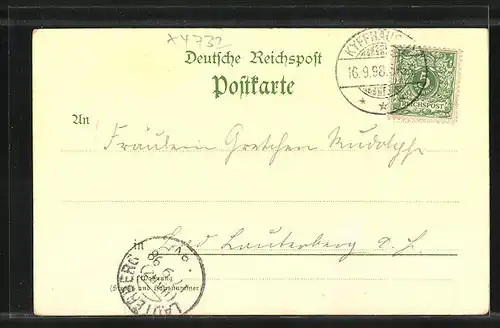 x4732
Deutsche Reichspost
Postkarte
KYFFHÄUS
16.9.98
5
REICHSPOST
An
Fräulein Gretchen Rudolph
in
Bad Lauterberg a. H.
Wohnung
(Straße und Hausnummer)
LAUTERBERG
9 98